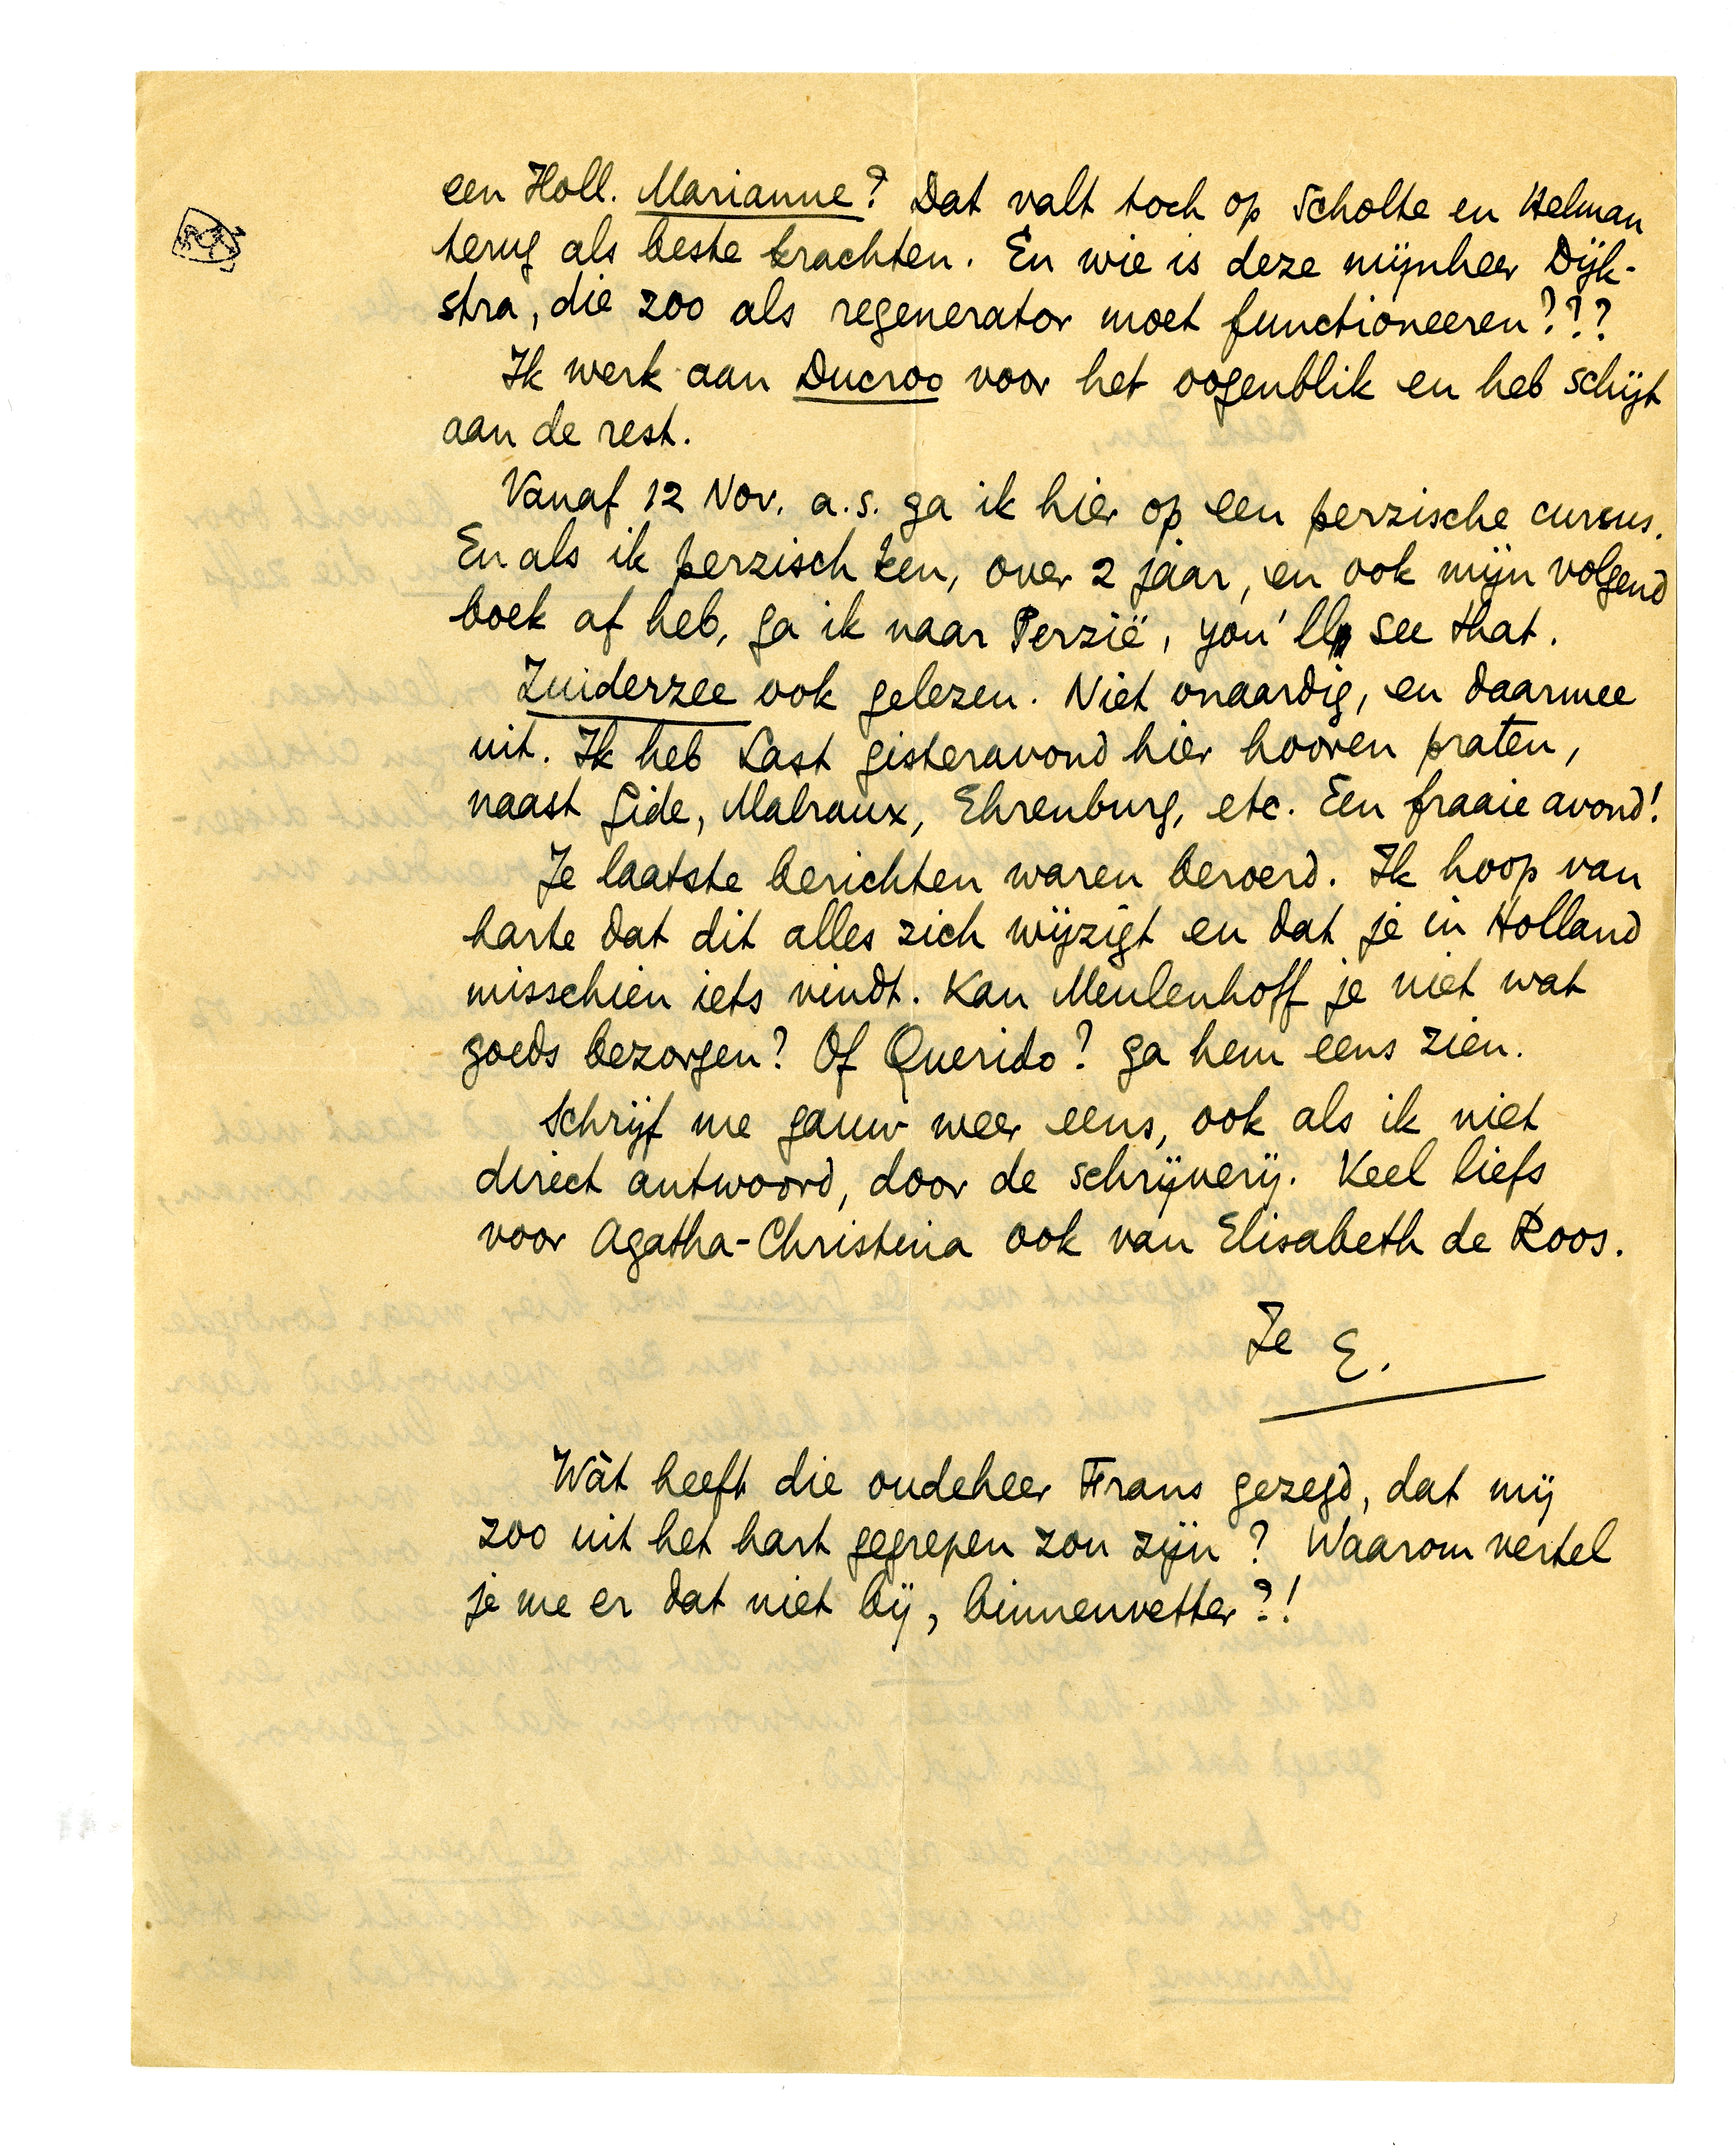 een Holl. Marianne? Dat valt toch op Scholte en Helman
terug als beste krachten. En wie is deze mijnheer Dijk-
stra, die zoo als regenerator moet functioneeren???
Ik werk aan Ducroo voor het oogenblik en heb schijt
aan de rest.
Vanaf 12 Nov. a.s. ga ik hier op een perzische cursus.
En als ik perzisch ken, over 2 jaar, en ook mijn volgend
boek af heb, ga ik naar Perzië, you'll see that.
Zuiderzee ook gelezen. Niet onaardig, en daarmee
uit. Ik heb Last gisteravond hier hooren praten,
naast Gide, Malraux, Ehrenburg, etc. Een fraaie avond!
Je laatste berichten waren beroerd. Ik hoop van
harte dat dit alles zich wijzigt en dat je in Holland
misschien iets vindt. Kan Meulenhoff je niet wat
goeds bezorgen? Of Querido? Ga hem eens zien.
Schrijf me gauw weer eens, ook als ik niet
direct antwoord, door de schrijverij. Veel liefs
voor Agatha-Christina ook van Elisabeth de Roos.
Je E.
Wàt heeft die oudeheer Frans gezegd, dat mij
zoo uit het hart gegrepen zou zijn? Waarom vertel
je me er dat niet bij, binnenvetter?!